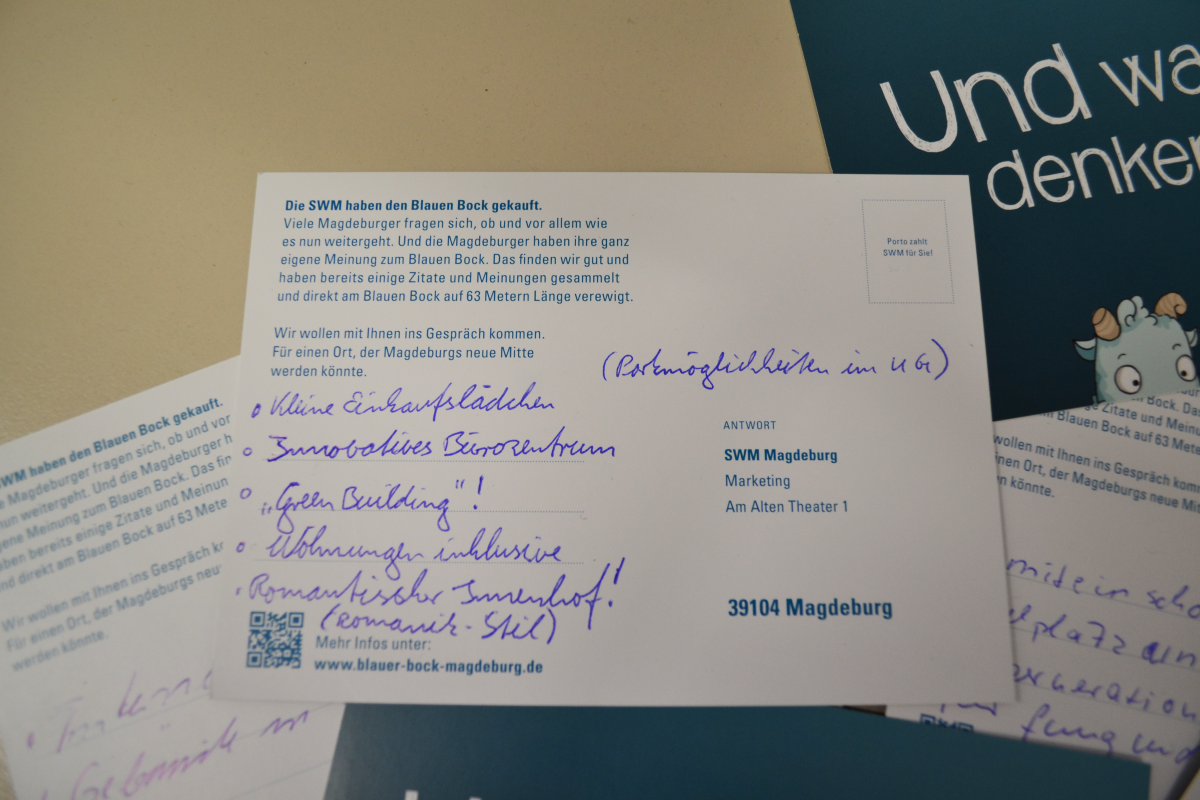 Und wa
denken
Die SWM haben den Blauen Bock gekauft.
Viele Magdeburger fragen sich, ob und vor allem wie
es nun weitergeht. Und die Magdeburger haben ihre ganz
eigene Meinung zum Blauen Bock. Das finden wir gut und
haben bereits einige Zitate und Meinungen gesammelt
und direkt am Blauen Bock auf 63 Metern Länge verewigt.
Wir wollen mit Ihnen ins Gespräch kommen.
Für einen Ort, der Magdeburgs neue Mitte
werden könnte.
Porto zahlt
SWM für Sie!
(Parkmöglichkeiten im UG)
• Kleine Einkaufslädchen
• Innovatives Bürozentrum
• „Green Building"!
• Wohnungen inklusive
• Romantischer Innenhof!
(Romanik-Stil)
Mehr Infos unter:
www.blauer-bock-magdeburg.de
ANTWORT
SWM Magdeburg
Marketing
Am Alten Theater 1
39104 Magdeburg
SWM haben den Blauen Bock gekauft.
e Magdeburger fragen sich, ob und vor
nun weitergeht. Und die Magdeburger h
ene Meinung zum Blauen Bock. Das fin
ben bereits einige Zitate und Meinun
nd direkt am Blauen Bock auf 63 Mete
Wir wollen mit Ihnen ins Gespräch k
Für einen Ort, der Magdeburgs neu
werden könnte.
Bock. Das
Zitate und Meinu
Blauen Bock auf 63 Mete
wollen mit Ihnen ins Gespräch
inen Ort, der Magdeburgs neue Mit
n könnte.
mit ein scho
lplatz